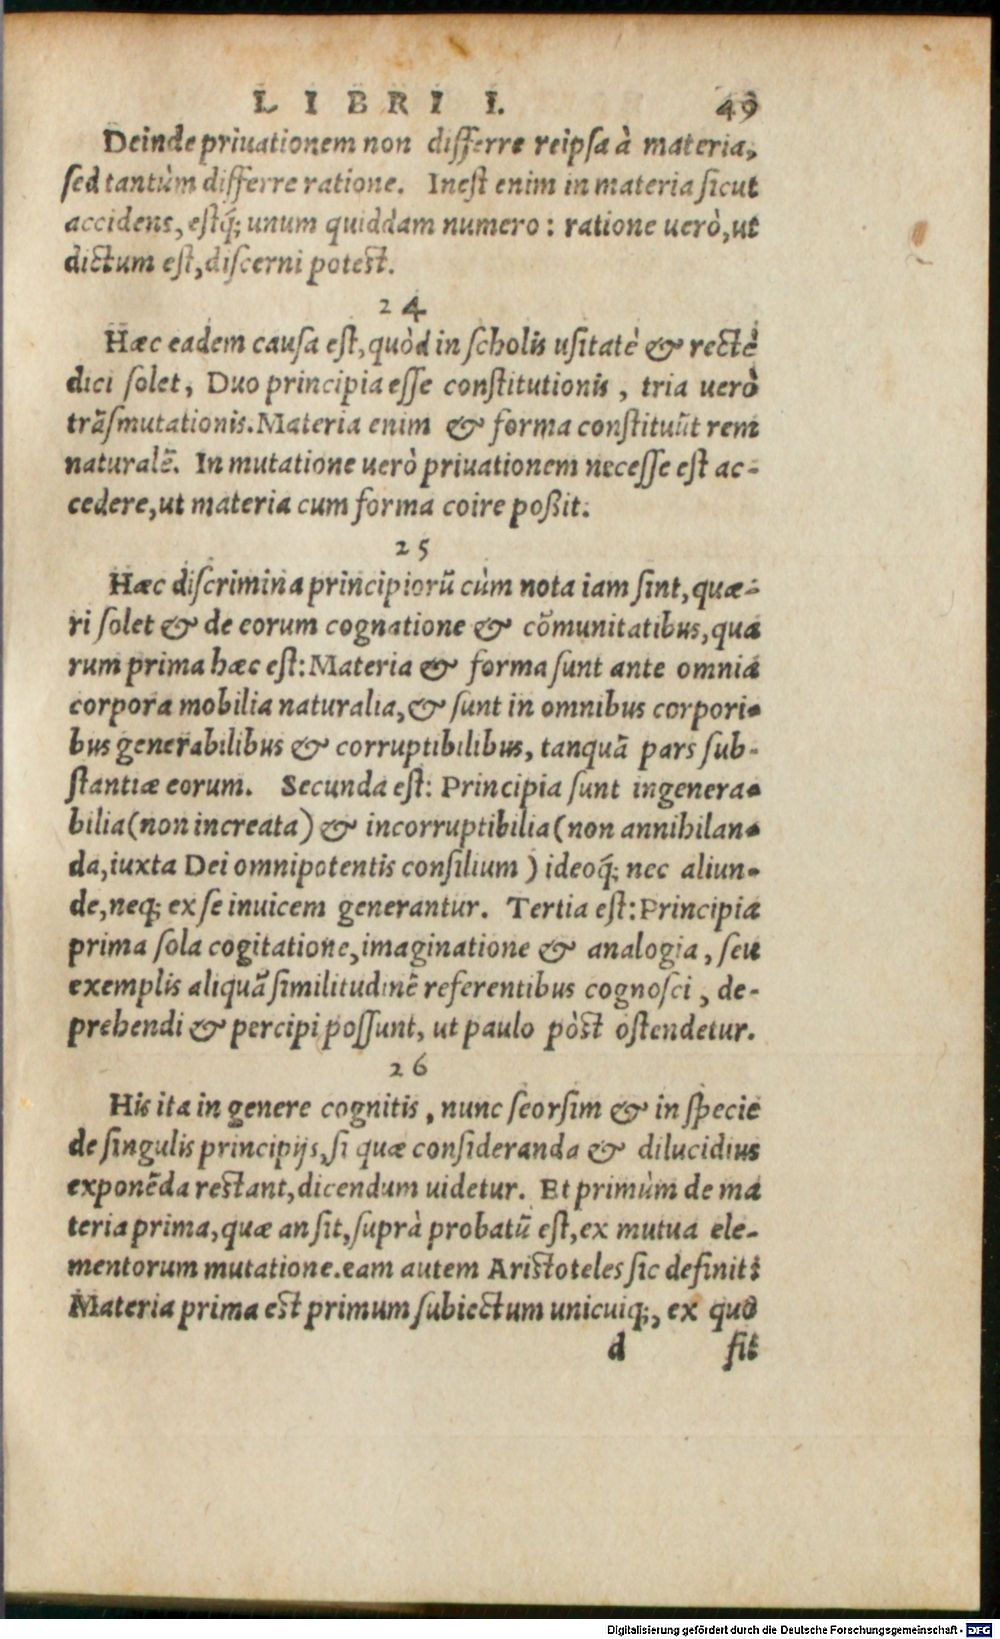 LIBRI I. 49
Deinde priuationem non differre reipsa à materia,
sed tantùm differre ratione. Inest enim in materia sicut
accidens, estq́; unum quiddam numero: ratione uerò, ut
dictum est, discerni potest.
24
Hæc eadem causa est, quòd in scholis usitatè & rectè
dici solet, Duo principia esse constitutionis, tria uerò
trãsmutationis. Materia enim & forma constituũt rem
naturalẽ. In mutatione uerò priuationem necesse est ac-
cedere, ut materia cum forma coire poßit.
25
Hæc discrimina principiorũ cùm nota iam sint, quæ-
ri solet & de eorum cognatione & cõmunitatibus, qua
rum prima hæc est: Materia & forma sunt ante omnia
corpora mobilia naturalia, & sunt in omnibus corpori-
bus generabilibus & corruptibilibus, tanquã pars sub-
stantiæ eorum. Secunda est: Principia sunt ingenera-
bilia (non increata) & incorruptibilia (non annihilan-
da, iuxta Dei omnipotentis consilium) ideoq́; nec aliun-
de, neq; ex se inuicem generantur. Tertia est: Principia
prima sola cogitatione, imaginatione & analogia, seu
exemplis aliquã similitudinẽ referentibus cognosci, de-
prehendi & percipi possunt, ut paulo pòst ostendetur.
26
His ita in genere cognitis, nunc seorsim & in specie
de singulis principijs, si quæ consideranda & dilucidius
exponẽda restant, dicendum uidetur. Et primùm de ma
teria prima, quæ an sit, suprà probatũ est, ex mutua ele-
mentorum mutatione. eam autem Aristoteles sic definit:
Materia prima est primum subiectum unicuiq;, ex quo
d fit
Digitalisierung gefördert durch die Deutsche Forschungsgemeinschaft - DFG